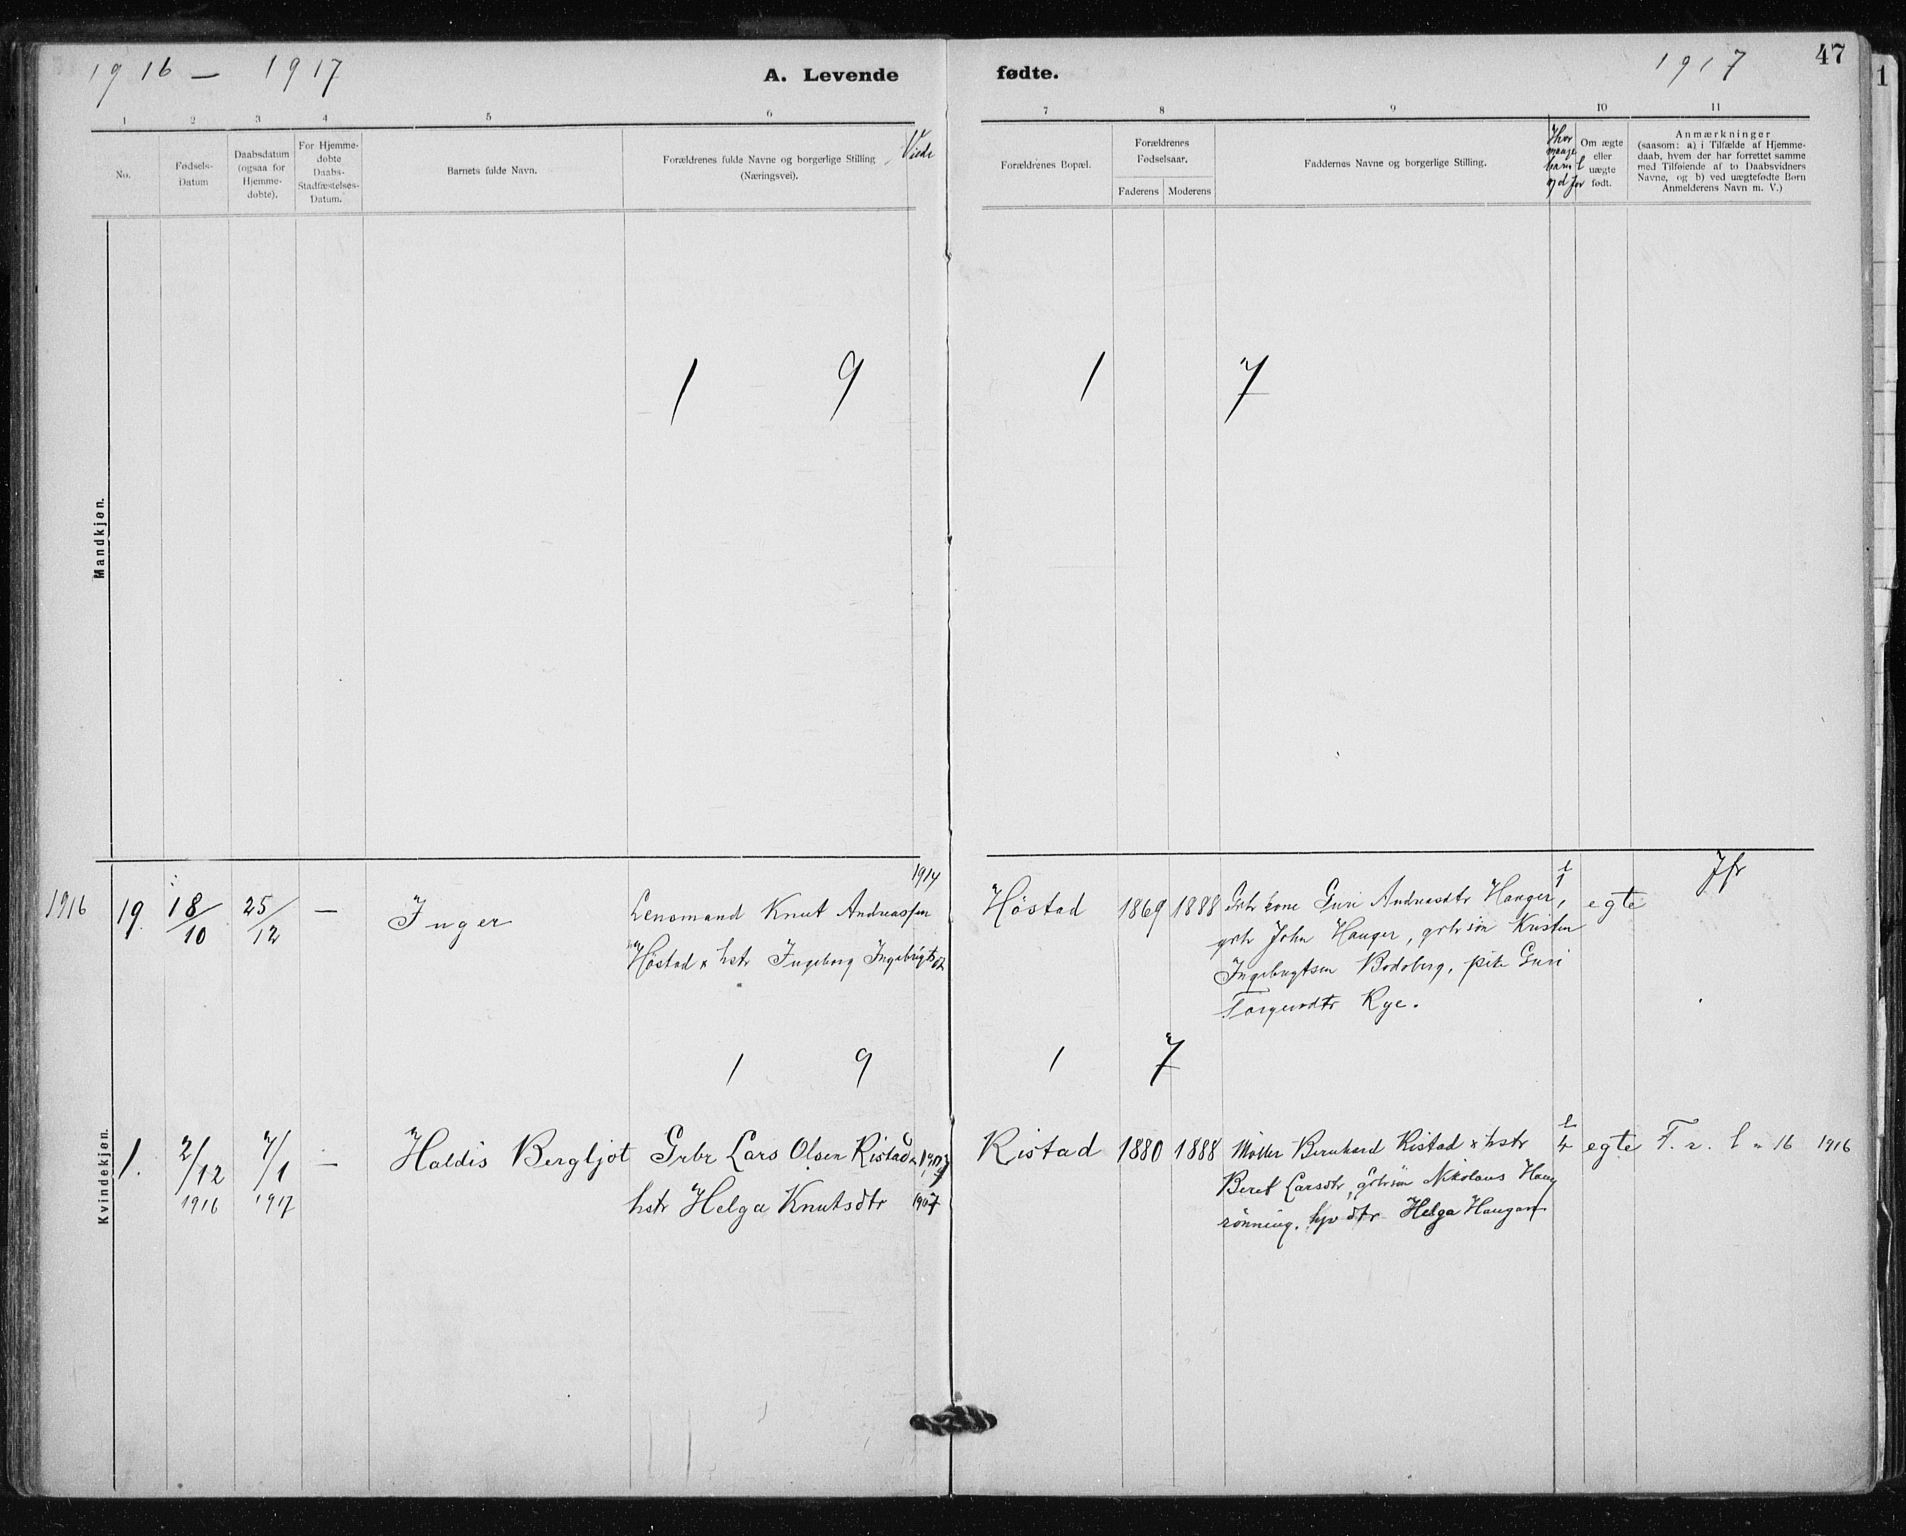 1916 – 1917
A. Levende fødte.
1917
47
1 2 3 4 5 6 7 8 9 10 11
No.
Fødsels-
Datum
Daabsdatum
(ogsaa for
Hjemme-
døbte).
For Hjemme-
døbte
Daabs-
Stadfæstelses-
Datum.
Barnets fulde Navn.
Forældrenes fulde Navne og borgerlige Stilling
(Næringsvei).
Viede
Forældrenes Bopæl.
Forældrenes
Fødselsaar.
Faderens Moderens
Faddernes Navne og borgerlige Stilling.
Hvor
mange
barn l
Om ægte
eller
uægte
født.
Anmærkninger
(saasom: a) i Tilfælde af Hjemme-
daab, hvem der har forrettet samme
med Tilføiende af to Daabsvidners
Navne, og b) ved uægtefødte Børn
Anmelderens Navn m. V.)
Mandkjøn.
1 9 1 7
Kvindekjøn.
1916 19. 18/10 25/12 — Inger
Lensmand Knut Andreassen
Høstad & hstr Ingeborg Ingebrigtsdt
1914
Høstad 1869 1888
Gbr kone Guri Andreasdtr Hanger,
gbr John Hanger, gbrsøn Kristen
Ingebrigtsen Bodsberg, pike Guri
Torgersdtr Rye.
l/1 egte Jfr
1 9 1 7
1. 2/12 1916 7/1 1917 — Haldis Bergljot
Grbr Lars Olsen Ristad &
hstr Helga Knutsdtr
1907
Ristad 1880 1888
Møller Bernhard Ristad & hstr
Beret Larsdtr, gbrsøn Nikolaus Haug
rønning, dtr Helga Haugan
l/4 egte F. r. l. 16 1916
1